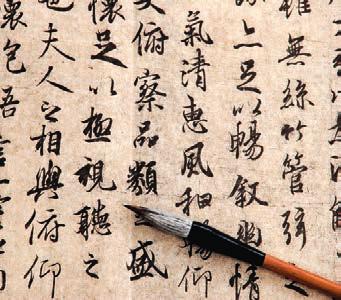 雖無絲竹管弦之
亦足以暢敘幽情
氣清惠風和暢仰
俯察品類之盛
懷足以極視聽之
也夫人之相與俯仰